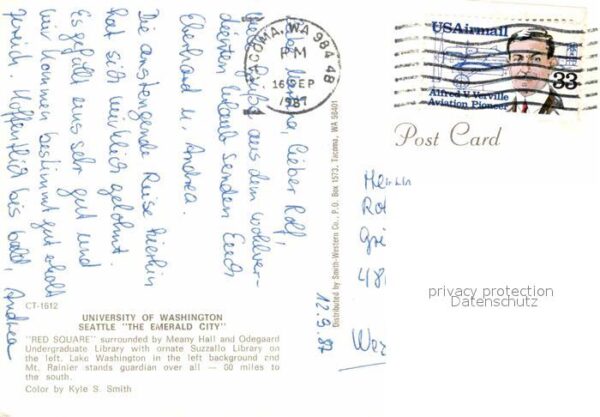 Liebe Martina, lieber Rolf,
viele Grüße aus dem wohlver-
dienten Urlaub senden Euch
Eberhard u. Andrea.
Die anstrengende Reise hierhin
hat sich wirklich gelohnt.
Es gefällt uns sehr gut und
wir kommen bestimmt gut erholt
zurück. Hoffentlich bis bald, Andrea
CT-1612
UNIVERSITY OF WASHINGTON
SEATTLE "THE EMERALD CITY"
"RED SQUARE" surrounded by Meany Hall and Odegaard
Undergraduate Library with ornate Suzzallo Library on
the left. Lake Washington in the left background and
Mt. Rainier stands guardian over all — 50 miles to
the south.
Color by Kyle S. Smith
Distributed by Smith-Western Co., P.O. Box 1573, Tacoma, WA 98401
12.9.87
TACOMA, WA 984 48
PM
16 SEP
1987
USAirmail
33
Alfred V. Verville
Aviation Pioneer
Post Card
Ro
48
We
privacy protection
Datenschutz